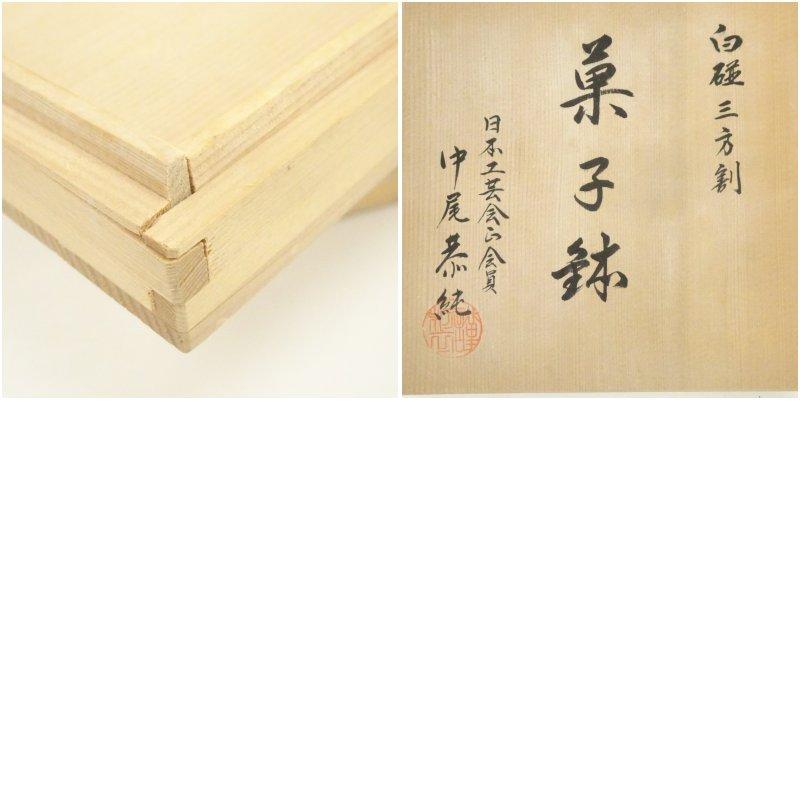 白磁三方割
菓子鉢
日本工芸会正会員
中尾恭純